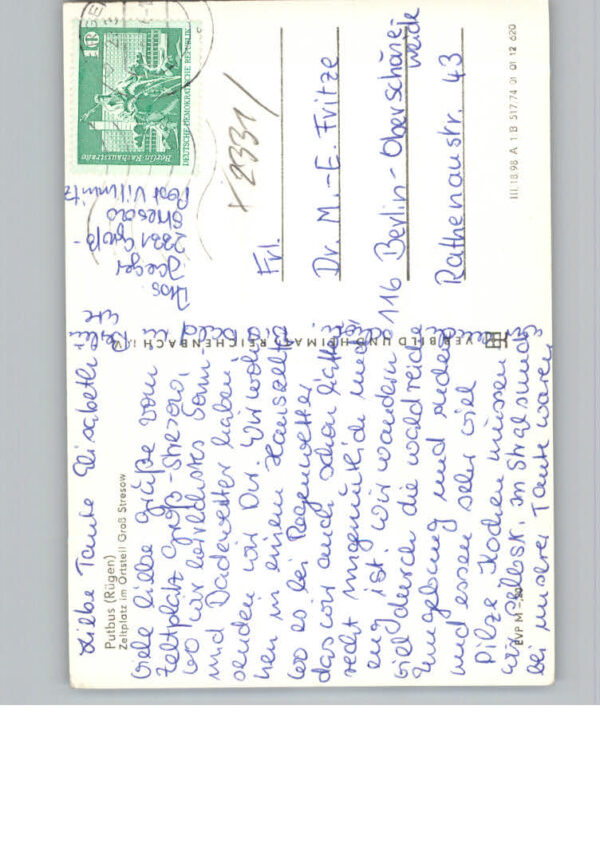 Liebe Tante Elisabeth!
Putbus (Rügen)
Zeltplatz im Ortsteil Groß Stresow
Viele liebe Grüße vom
Zeltplatz Groß-Stresow,
wo wir
und Badewetter haben
senden wir Dir. Wir woh-
nen in einem Hauszelt
wo es bei Regenwetter
das wir auch schon hatten
recht ungemütlich und
eng ist. Wir wandern
viel durch die waldreiche
Umgebung und
und essen sehr viel
Pilze. Kochen müssen
wir selbst. In Stralsund
bei unserer Tante waren
EVP M -,20
VERBILD UND HEIMAT REICHENBACH i. V.
Abs.
Jaeger
2331 Groß-
Stresow
Post Vilmnitz
10
DEUTSCHE DEMOKRATISCHE REPUBLIK
Berlin Rathausstraße
x 2331/
Frl.
Dr. M.-E. Fritze
116 Berlin-Oberschöne-
weide
Rathenaustr. 43
III 18 98 A 1 B 517 74 01 01 12 620